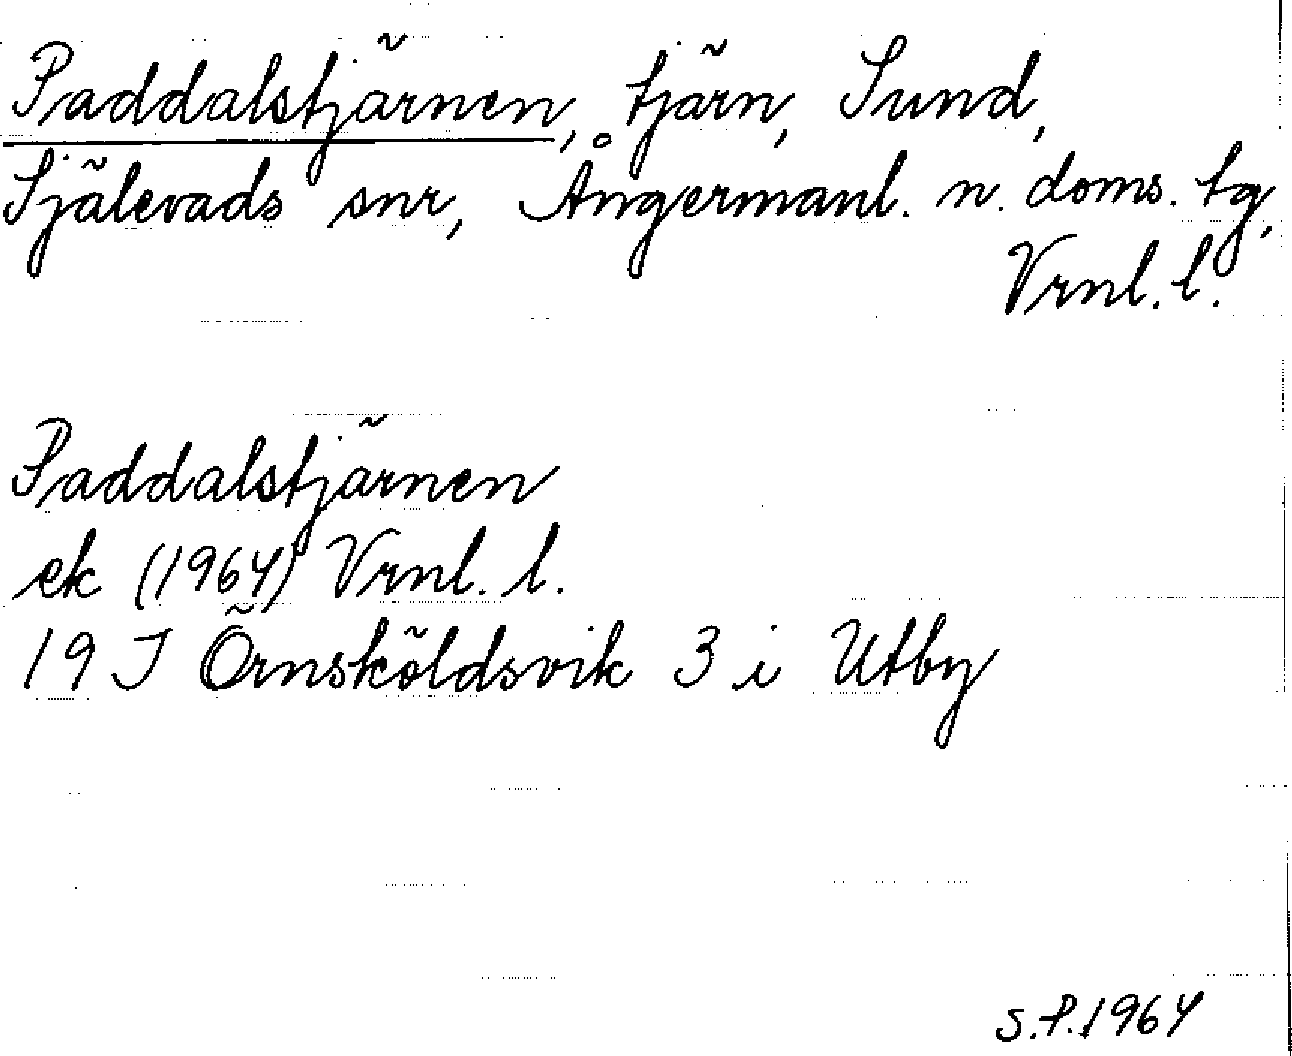 Paddalstjärnen, tjärn, Sund,
Själevads snr, Ångermanl. n. doms. tg,
Vrnl. l.
Paddalstjärnen
ek (1964) Vrnl. l.
19 J Örnsköldsvik 3 i Utby
S.P. 1964